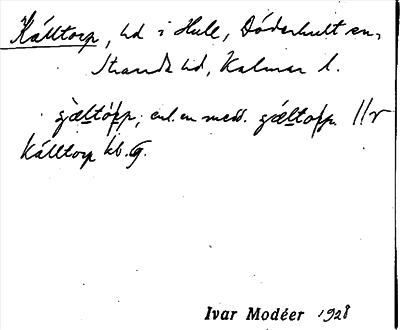 Källtorp, lId i Hule, Döderhult sn,
Stranda hd, Kalmar l.
gæ̀ltópp, enl. en medd. gǽltopp. //r
Källtorp kb. G.
Ivar Modéer 1928